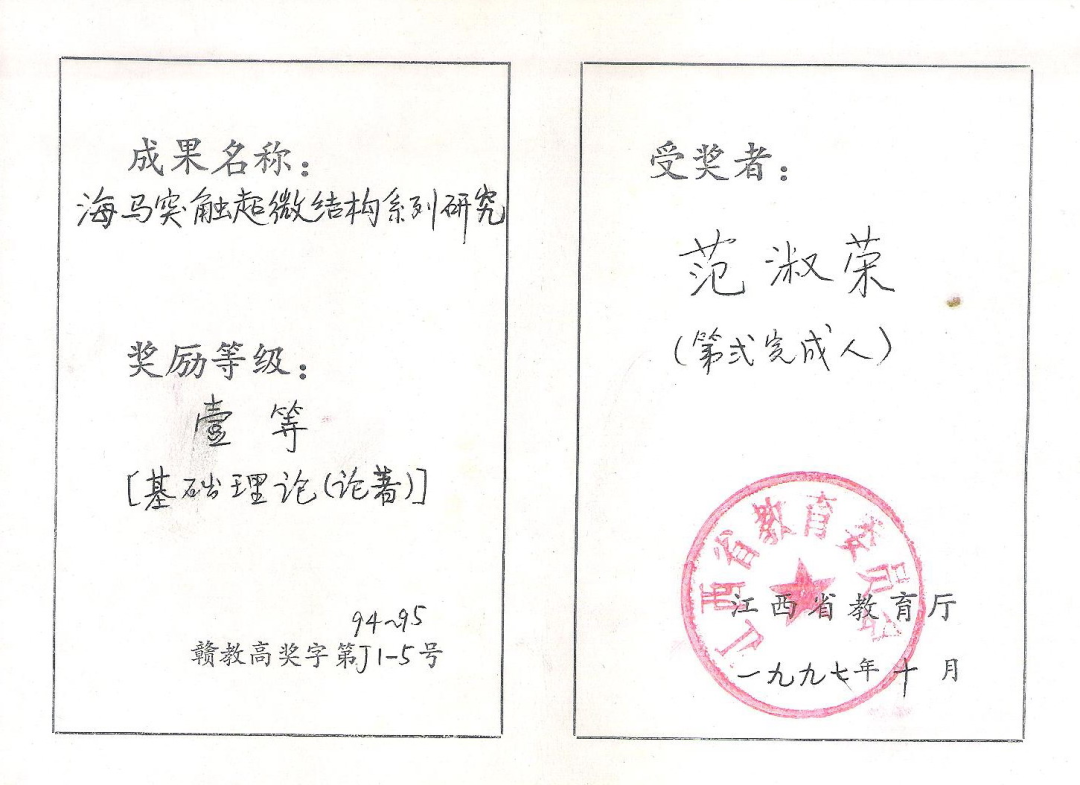 成果名称：
海马突触超微结构系列研究
奖励等级：
壹等
[基础理论(论著)]
94~95
赣教高奖字第J1-5号
受奖者：
范淑荣
(第弍完成人)
江西省教育委员会
江西省教育厅
一九九七年十月